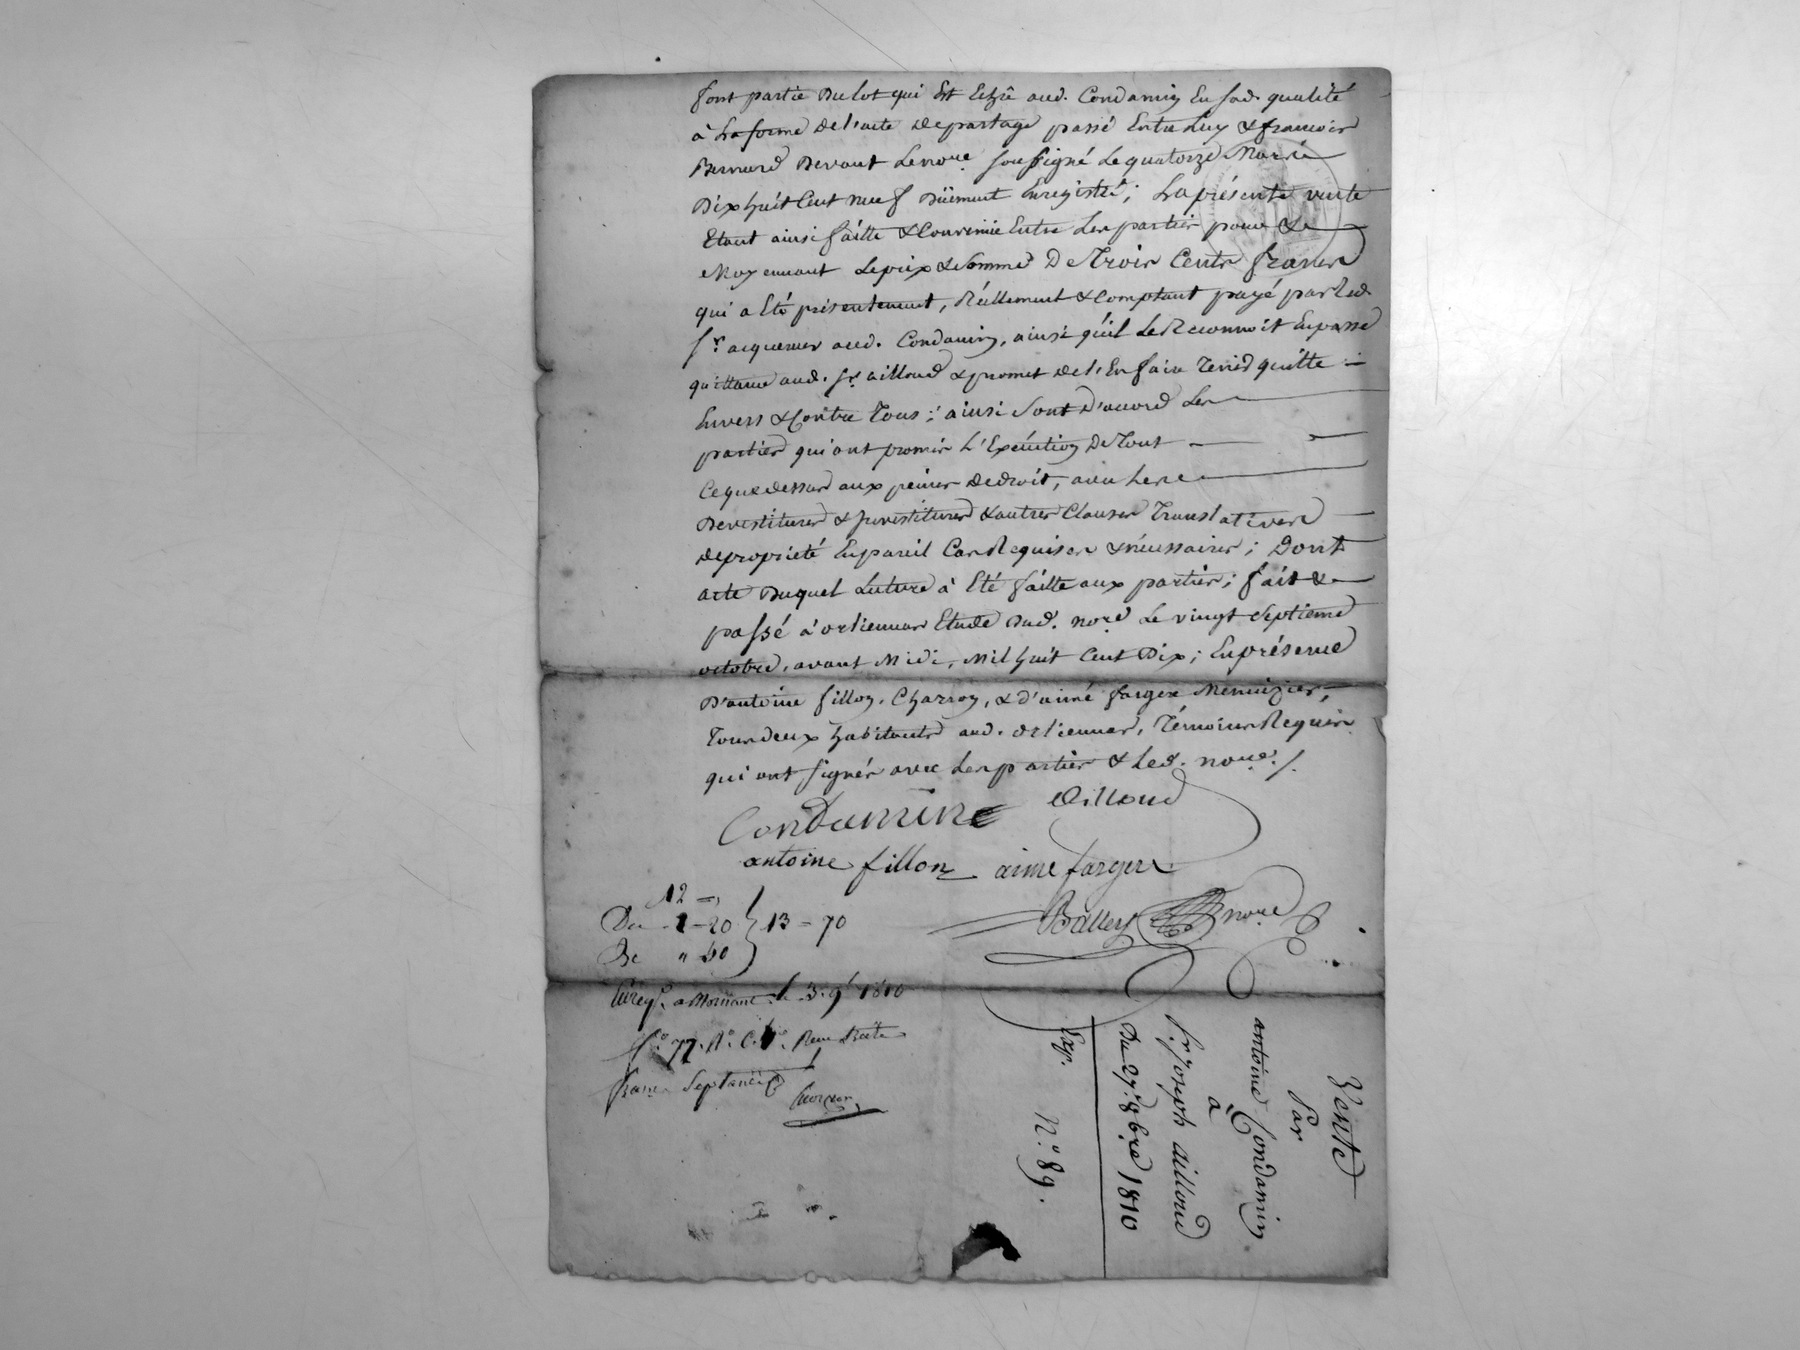 font partie Du lot qui Est Echû aud. Condamin En sad. qualité
à La forme De l'acte De partage passé Entre Luy & francois
Bernard Devant Le no.re soussigné Le quatorze
Dix huit Cent neuf Düement Enregistré; La présente vente
Etant ainsi faitte & Convenüe Entre Les parties pour &
Moyennant Le prix & somme De Trois Cents francs
qui a Eté présentement, Réellement & Comptant payé par Led.
S.r acquereur aud. Condamin, ainsi qu'il Le Reconnoit En passe
quittance aud. S.r ailloud & promet de l'En faire Tenir quitte
Envers & Contre Tous; ainsi sont D'accord Les
parties qui ont promis L'Exécution De Tout
Ce que dessus aux peines de droit, avec Les
Devestitures & Investitures & autres Clauses Translatives
de propriété En pareil Cas Requises & nécessaires; Dont
acte Duquel Lecture à Eté faitte aux parties; fait &
passé à orliennas Etude Dud. no.re Le vingt Septieme
octobre, avant Midi, Mil huit Cent Dix; En présence
D'antoine fillon, Charron, & d'aimé farges Menuizier,
Tous deux habitants aud. orlienas, Témoins Requis
qui ont signés avec Les parties & Led. no.re ./.
Condamine Ailloud
antoine fillon aime farges
Balley no.re
12 =
Du 1 - 20 } 13 - 70
De " 50
Enreg.é a Mornant le 3. 9.e 1810
f.o 77. R.o C. Reçu Treize
francs Septante C.
Vente
Par
antoine Condamin
à
S.r Joseph ailloud
Du 27. 8bre 1810
Exp. N.o 89.